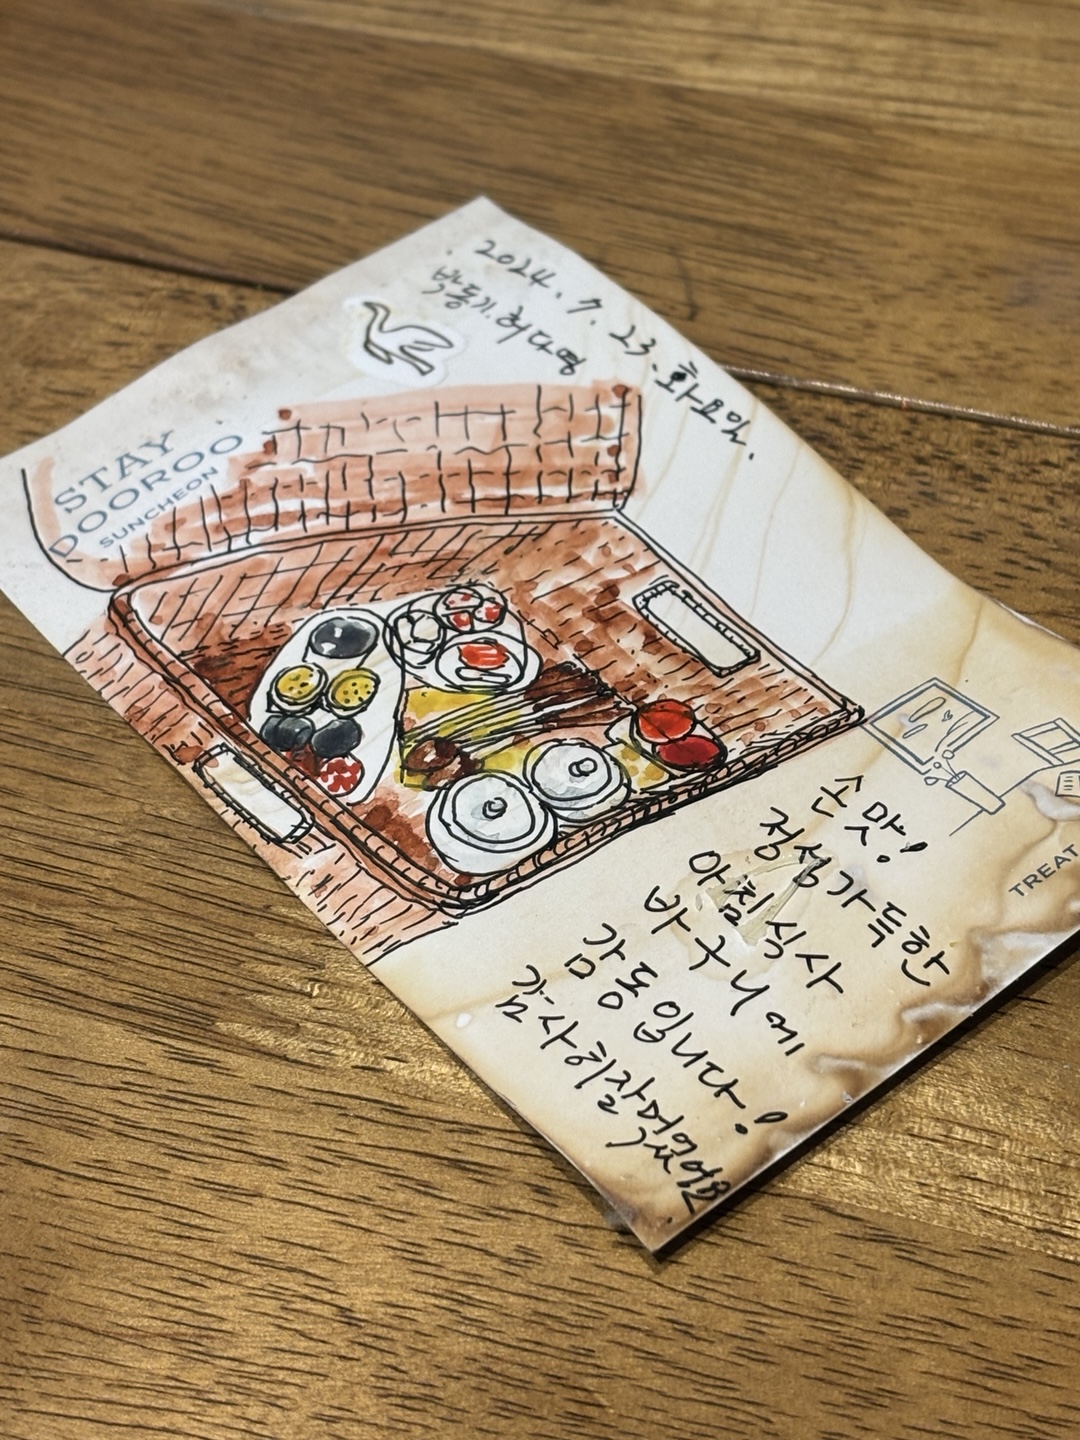 2024. 7. 23. 화요일.
박동기. 허다영
STAY
DOOROO
SUNCHEON
TREAT
손맛!
정성가득한
아침식사
바구니에
감동입니다!
감사히잘먹었어요